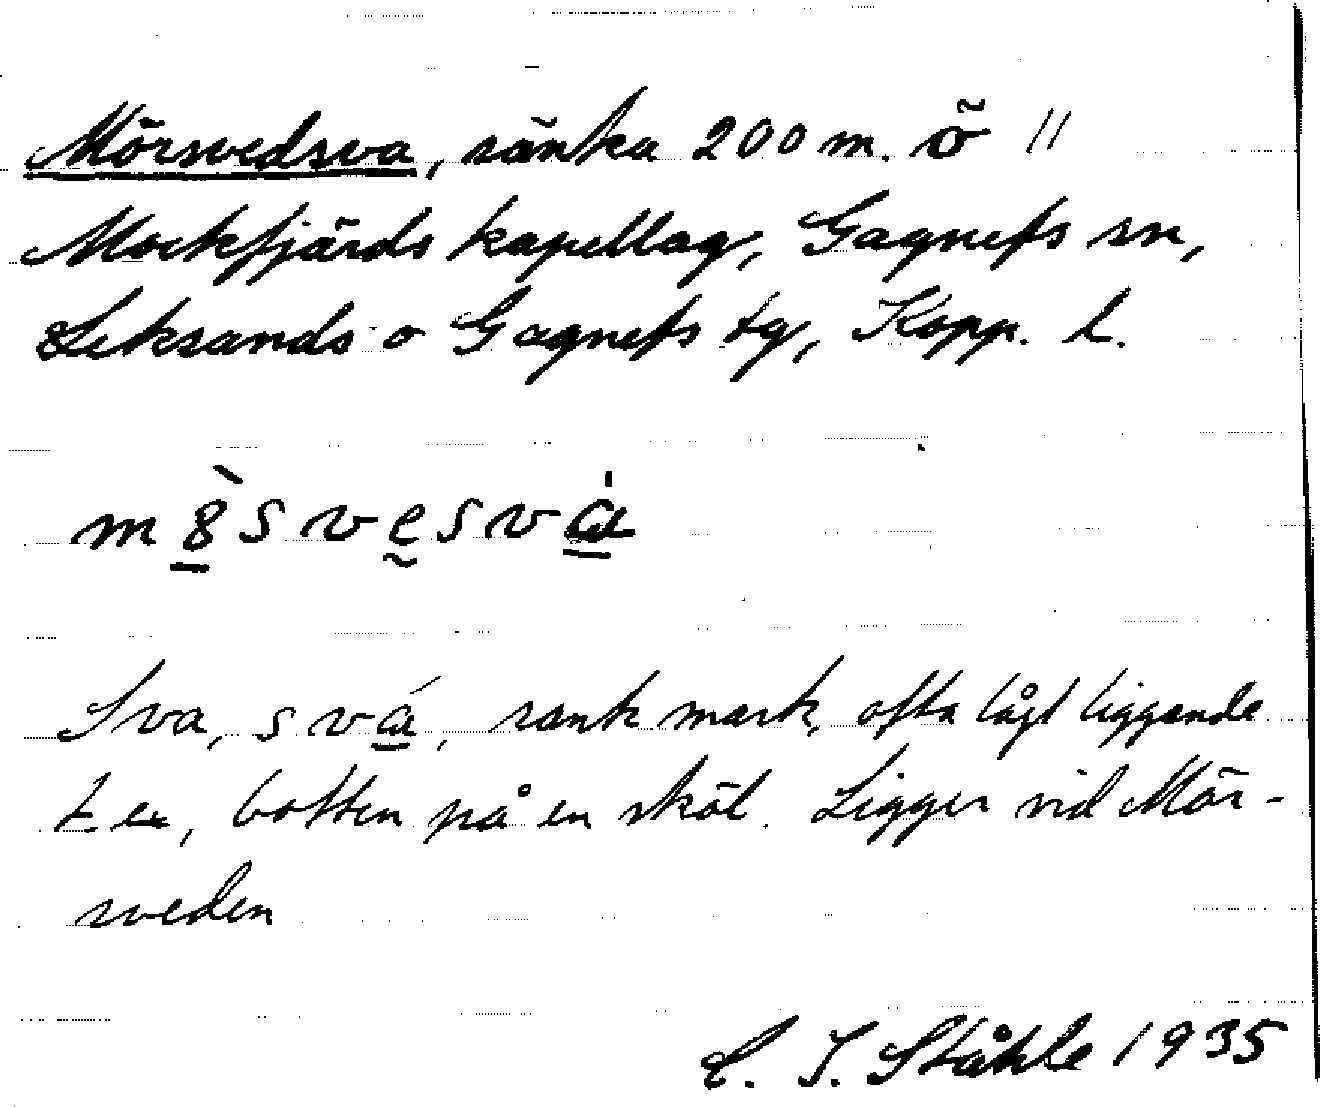 Mörsvedsva, sänka 200 m. ö //
Mockfjärds kapellag, Gagnefs sn,
Leksands o Gagnefs tg, Kopp. l.
m 8̀ s v e s v á
Sva, s v á, sank mark, ofta lågt liggande
t ex, botten på en skål. Ligger vid Mör-
sveden
C. I. Ståhle 1935